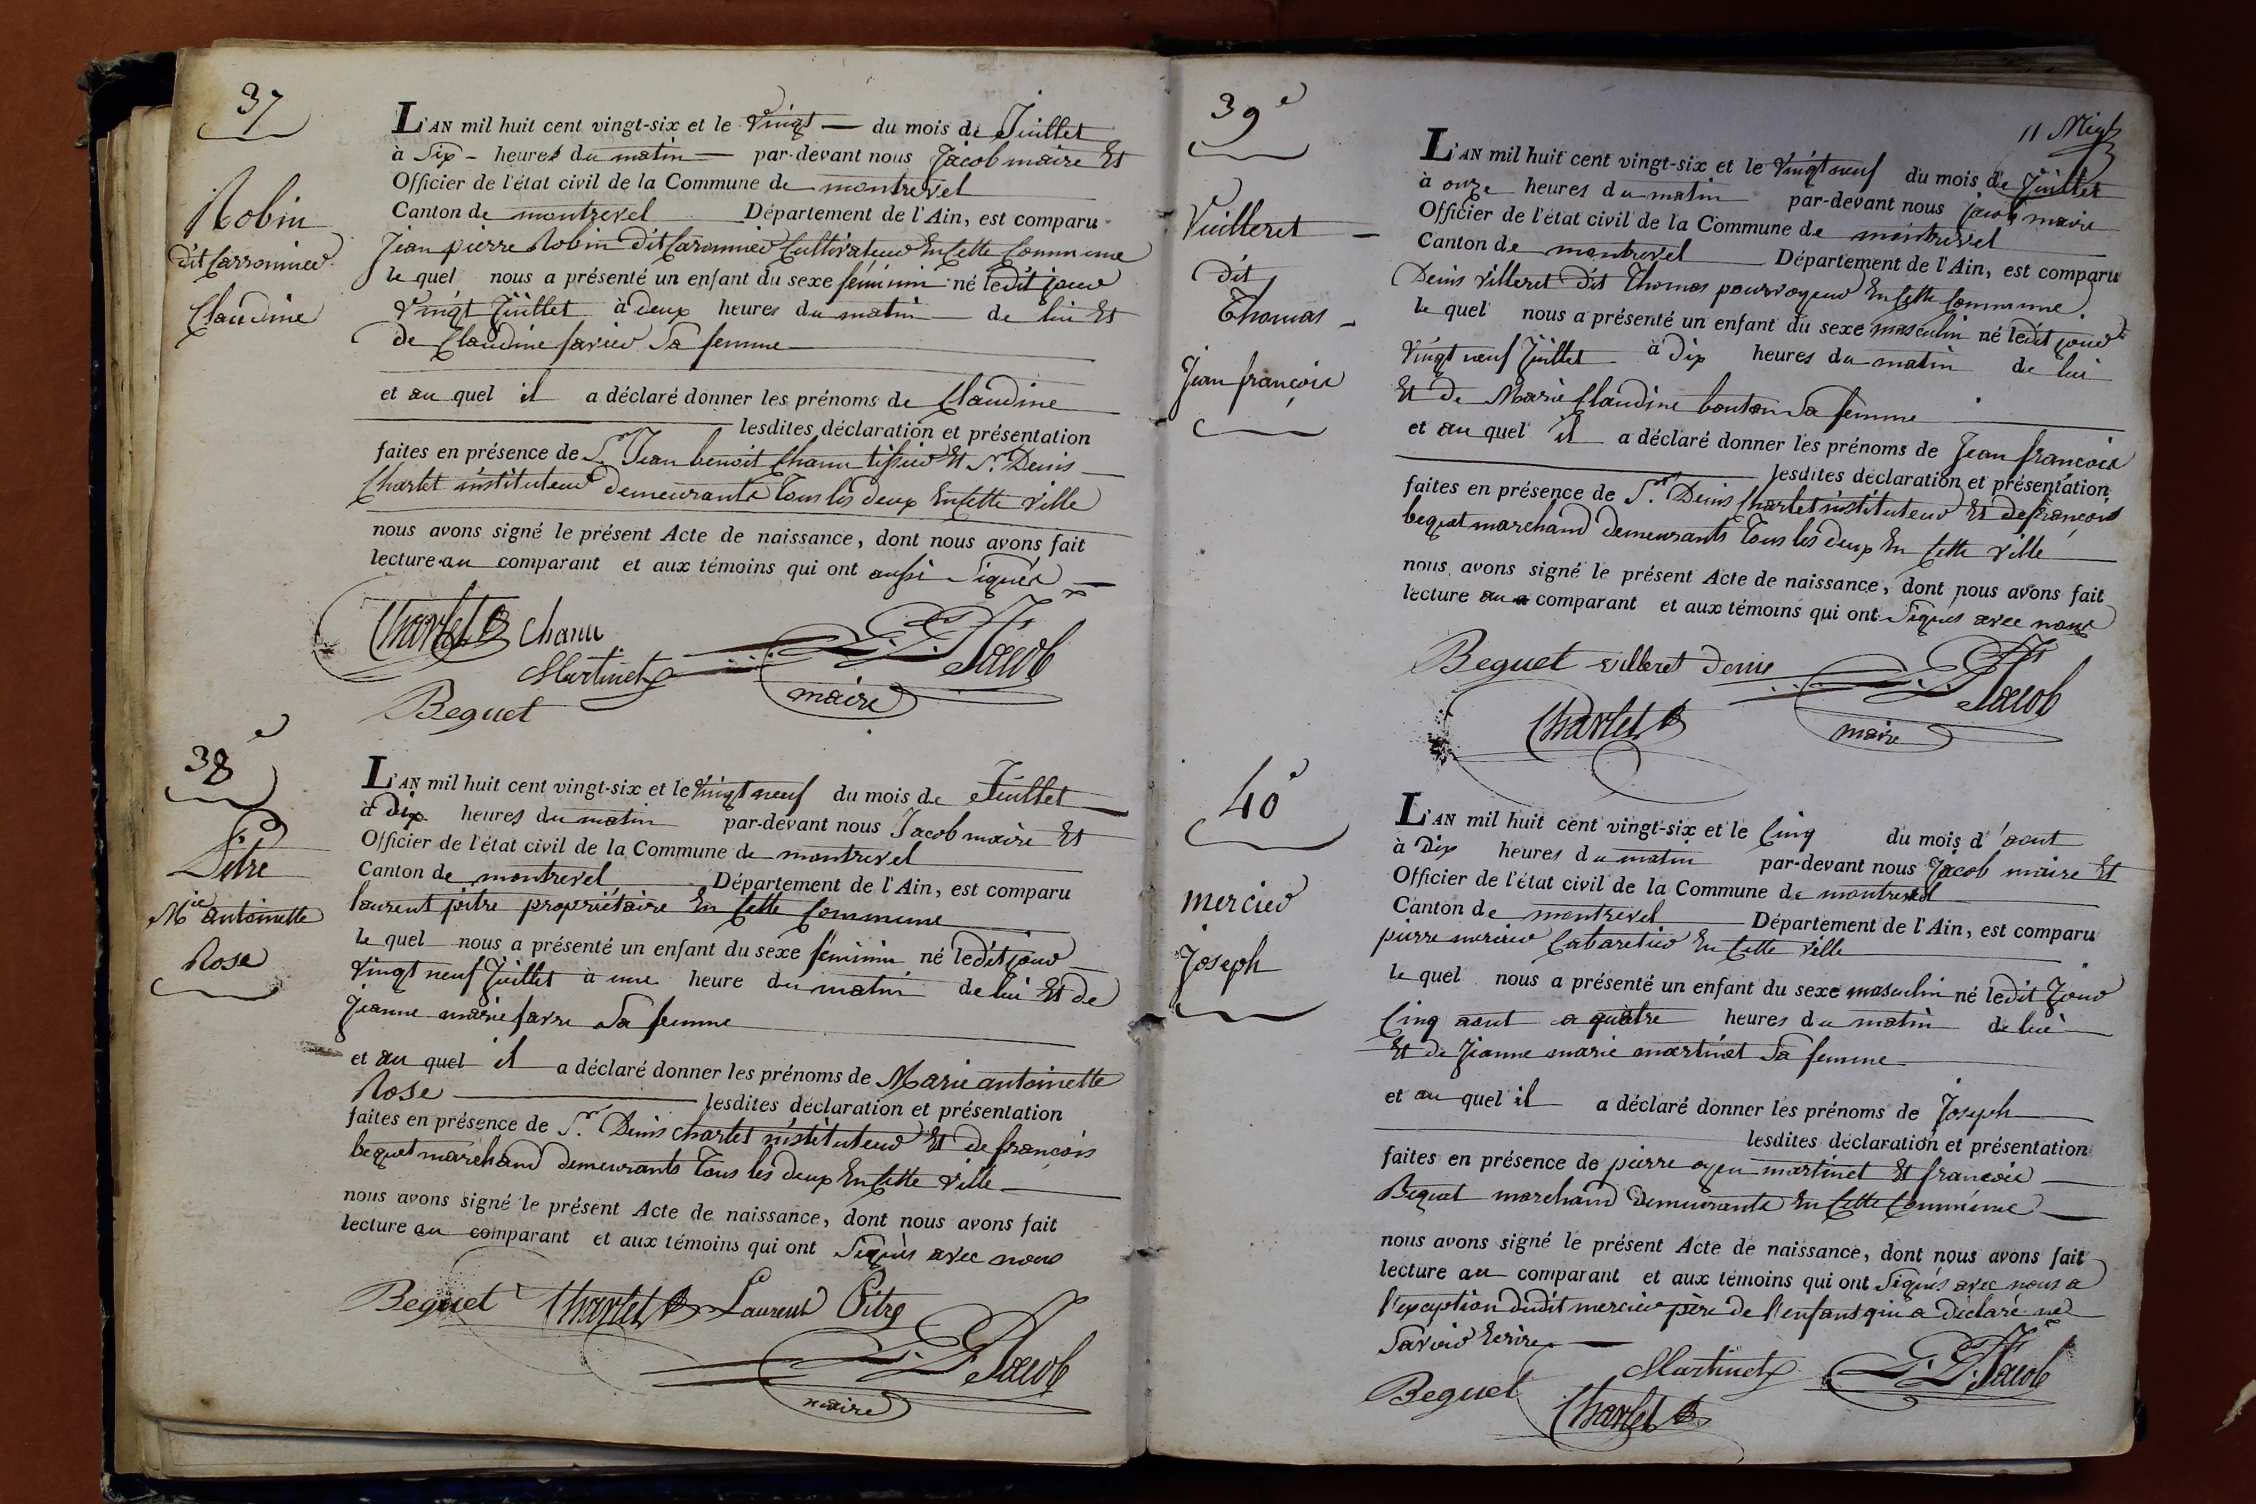 37
Robin
dit Carronnier
Claudine
L'AN mil huit cent vingt-six et le Vingt du mois de Juillet
à Six heures du matin par-devant nous Jacob maire Et
Officier de l'état civil de la Commune de montrevel
Canton de montrevel Département de l'Ain, est comparu
Jean pierre Robin dit Caronnier Cultivateur En Cette Commune
le quel nous a présenté un enfant du sexe féminin né ledit jour
Vingt Juillet à deux heures du matin de lui Et
de Claudine favier Sa femme
et au quel il a déclaré donner les prénoms de Claudine
lesdites déclaration et présentation
faites en présence de Sr. Jean benoit Chanu tissier Et Sr. Denis
Charlet instituteur demeurants Tous les deux En Cette Ville
nous avons signé le présent Acte de naissance, dont nous avons fait
lecture au comparant et aux témoins qui ont aussi Signés
Charlet Chanu
Martinet
Jacob
Beguet
maire
38e
Pitre
Mie antoinette
Rose
L'AN mil huit cent vingt-six et le Vingt neuf du mois de Juillet
à Dix heures du matin par-devant nous Jacob maire Et
Officier de l'état civil de la Commune de montrevel
Canton de montrevel Département de l'Ain, est comparu
laurent pitre propriétaire En Cette Commune
le quel nous a présenté un enfant du sexe féminin né ledit jour
Vingt neuf Juillet à une heure du matin de lui Et de
Jeanne marie favre Sa femme
et au quel il a déclaré donner les prénoms de Marie antoinette
Rose lesdites déclaration et présentation
faites en présence de Sr. Denis charlet instituteur Et de francois
bequet marchand demeurants Tous les deux En Cette Ville
nous avons signé le présent Acte de naissance, dont nous avons fait
lecture au comparant et aux témoins qui ont Signés avec nous
Beguet Charlet Laurent Pitre
Jacob
maire
39e
Vuilleret
dit
Thomas
Jean françois
L'AN mil huit cent vingt-six et le Vingt neuf du mois de Juillet
à onze heures du matin par-devant nous Jacob maire
Officier de l'état civil de la Commune de montrevel
Canton de montrevel Département de l'Ain, est comparu
Denis Villeret dit Thomas pourvoyeur En Cette Commune
le quel nous a présenté un enfant du sexe masculin né ledit jour
Vingt neuf Juillet à Dix heures du matin de lui
Et de Marie Claudine bouton Sa femme
et au quel il a déclaré donner les prénoms de Jean françois
lesdites déclaration et présentation
faites en présence de Sr. Denis Charlet instituteur Et de françois
bequet marchand demeurants Tous les deux En Cette Ville
nous avons signé le présent Acte de naissance, dont nous avons fait
lecture au comparant et aux témoins qui ont Signés avec nous
Beguet villeret denis
Jacob
Charlet
maire
40e
mercier
Joseph
L'AN mil huit cent vingt-six et le Cinq du mois d'aout
à Dix heures du matin par-devant nous Jacob maire Et
Officier de l'état civil de la Commune de montrevel
Canton de montrevel Département de l'Ain, est comparu
pierre mercier Cabaretier En Cette Ville
le quel nous a présenté un enfant du sexe masculin né ledit Jour
Cinq aout a quatre heures du matin de lui
Et de Jeanne marie martinet Sa femme
et au quel il a déclaré donner les prénoms de Joseph
lesdites déclaration et présentation
faites en présence de pierre martinet Et françois
Bequet marchand demeurants En Cette Commune
nous avons signé le présent Acte de naissance, dont nous avons fait
lecture au comparant et aux témoins qui ont Signés avec nous a
l'exception dudit mercier père de l'enfant qui a déclaré ne
Savoir Ecrire
Martinet
Jacob
Beguet
Charlet